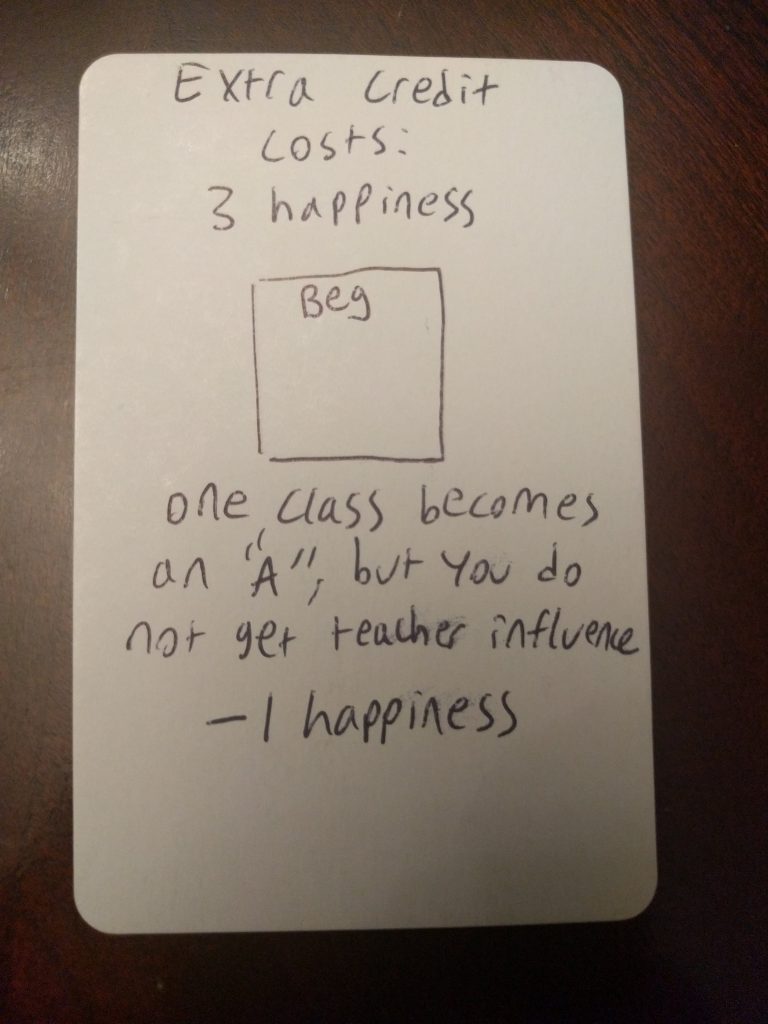 Extra Credit
Costs:
3 happiness
Beg
one class becomes
an "A", but you do
not get teacher influence
-1 happiness